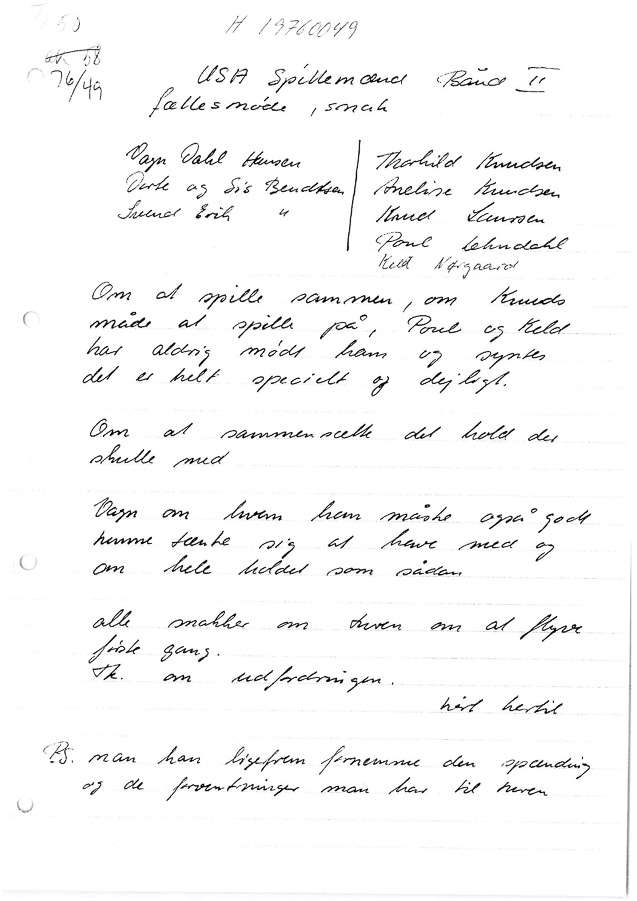 50
H 19760049
58
76/49
USA Spillemænd Bånd II
fællesmøde, snak
Vagn Dahl Hansen
Dorte og Sis Bendtsen
Svend Erik "
Thorhild Knudsen
Anelise Knudsen
Knud Laursen
Poul Lehndahl
Keld Nørgaard
Om at spille sammen, om Knuds
måde at spille på, Poul og Keld
har aldrig mødt ham og syntes
det er helt specielt og dejligt.
Om at sammensætte det hold der
skulle med
Vagn om hvem han måske også godt
kunne tænke sig at have med og
om hele holdet som sådan
alle snakker om turen om at flyve
første gang.
Th. om udfordringen.
hørt hertil
P.S. man kan ligefrem fornemme den spænding
og de forventninger man har til turen